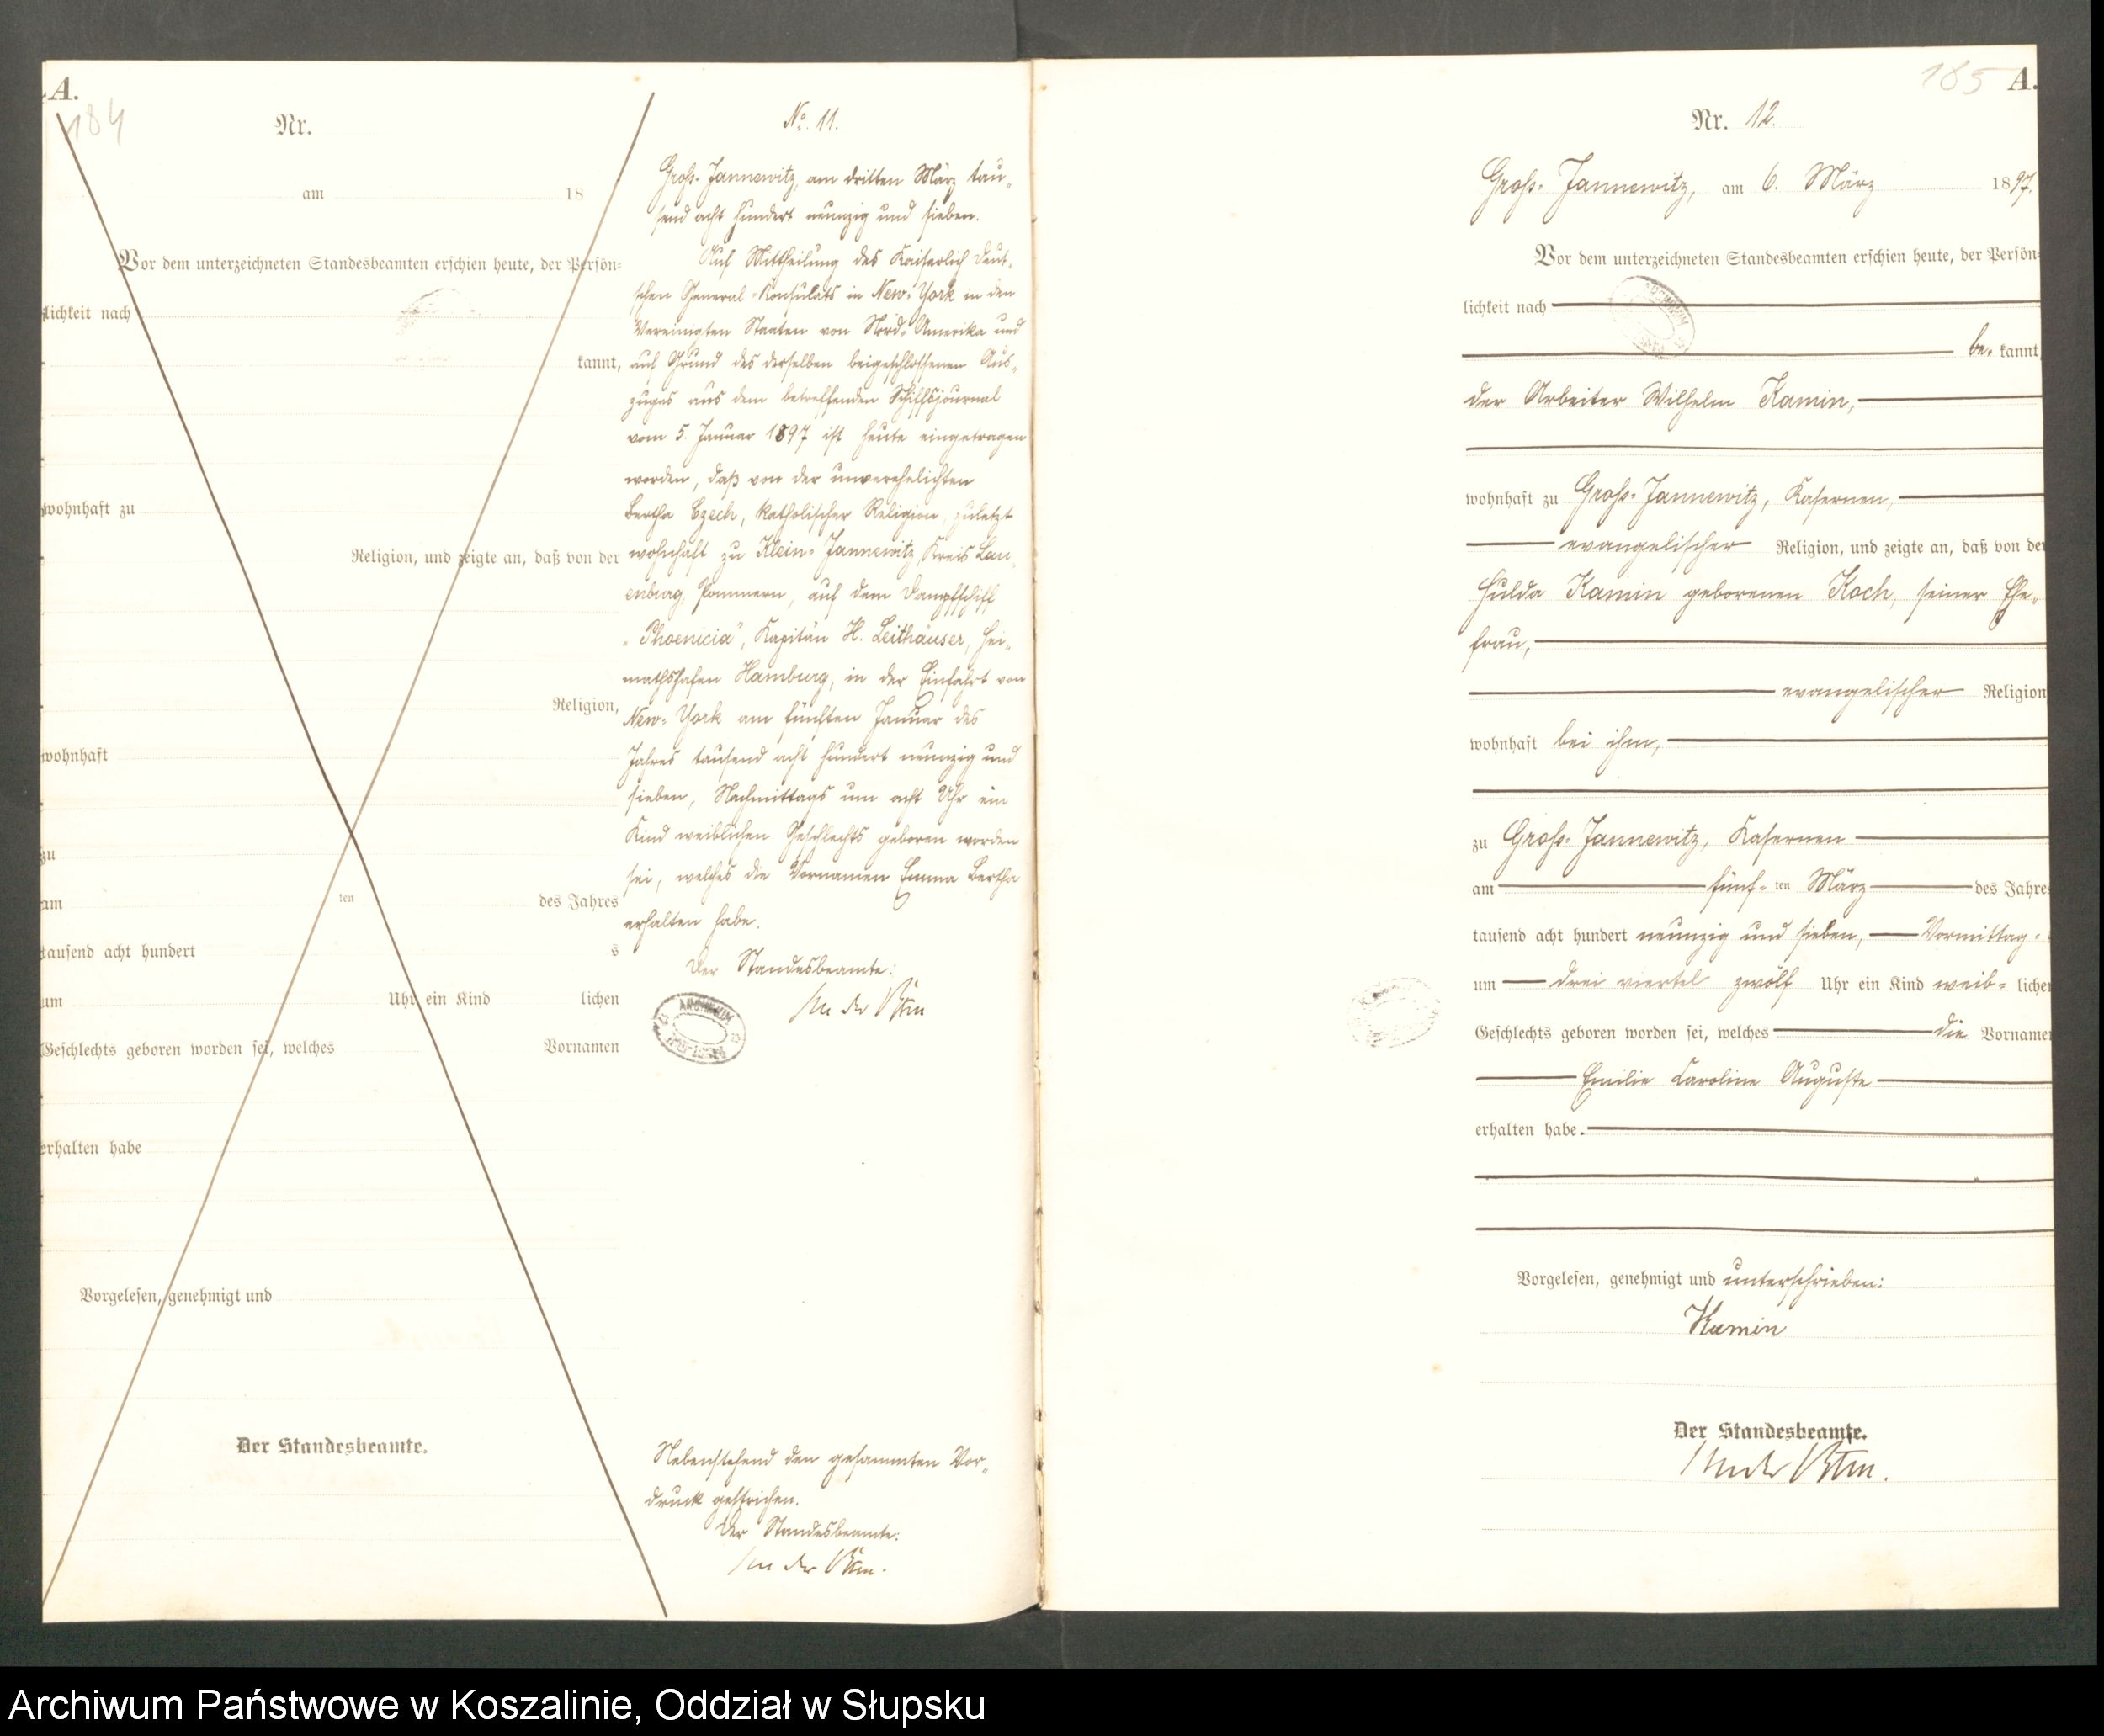 A.
184
Nr.
am 18
Vor dem unterzeichneten Standesbeamten erschien heute, der Persön-
lichkeit nach
kannt,
wohnhaft zu
Religion, und zeigte an, daß von der
Religion,
wohnhaft
zu
am ten des Jahres
tausend acht hundert s
um Uhr ein Kind lichen
Geschlechts geboren worden sei, welches Vornamen
erhalten habe
Vorgelesen, genehmigt und
Der Standesbeamte.
No. 11.
Groß-Jannewitz, am dritten März tau-
send acht hundert neunzig und sieben.
Auf Mittheilung des Kaiserlich Deut-
schen General-Konsulats in New-York in den
Vereinigten Staaten von Nord-Amerika und
auf Grund des derselben beigeschlossenen Aus-
zuges aus dem betreffenden Schiffsjournal
vom 5. Januar 1897 ist heute eingetragen
worden, daß von der unverehelichten
Bertha Czech, katholischer Religion, zuletzt
wohnhaft zu Klein-Jannewitz, Kreis Lau-
enburg, Pommern, auf dem Dampfschiff
"Phoenicia", Kapitän H. Leithäuser, Hei-
mathshafen Hamburg, in der Einfahrt von
New-York am fünften Januar des
Jahres tausend acht hundert neunzig und
sieben, Nachmittags um acht Uhr ein
Kind weiblichen Geschlechts geboren worden
sei, welches die Vornamen Emma Bertha
erhalten habe.
Der Standesbeamte:
ARCHIWUM
Nebenstehend den gesammten Vor-
druck gestrichen.
Der Standesbeamte:
185 A.
Nr. 12.
Groß-Jannewitz, am 6. März 1897.
Vor dem unterzeichneten Standesbeamten erschien heute, der Persön-
lichkeit nach
ARCHIWUM
be- kannt,
der Arbeiter Wilhelm Kamin,
wohnhaft zu Groß-Jannewitz, Kasernen,
evangelischer Religion, und zeigte an, daß von der
Hulda Kamin geborenen Koch, seiner Ehe-
frau,
evangelischer Religion
wohnhaft bei ihm,
zu Groß-Jannewitz, Kasernen
am fünf- ten März des Jahres
tausend acht hundert neunzig und sieben, Vormittag-
um drei viertel zwölf Uhr ein Kind weib- lichen
Geschlechts geboren worden sei, welches die Vornamen
Emilie Caroline Auguste
erhalten habe.
Vorgelesen, genehmigt und unterschrieben:
Kamin
Der Standesbeamte.
Archiwum Państwowe w Koszalinie, Oddział w Słupsku